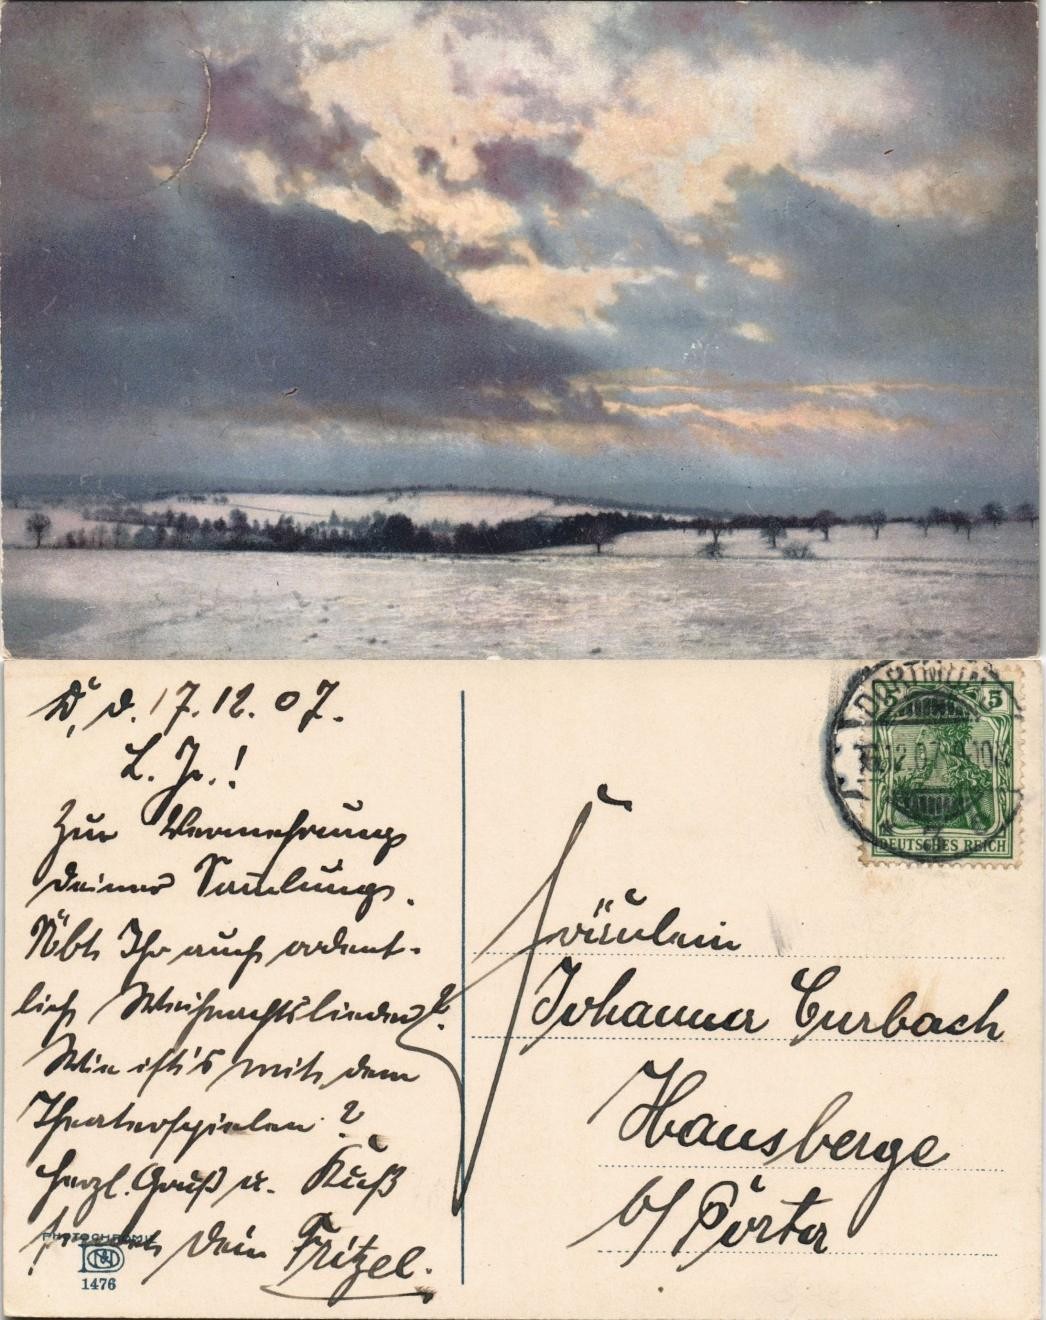 D, d. 17.12.07.
L. H.!
Zur Vermehrung
deiner Samlung.
Übt Ihr auch ordent-
lich Weihnachtslieder?
Wie ist's mit dem
Theaterspielen?
Herzl. Gruß u. Kuß
sendet dein Fritzel.
PHOTOCHROMIE
1476
DORTMUND
12.07
5
DEUTSCHES REICH
Fräulein
Johanna Curbach
Hausberge
b/ Porta